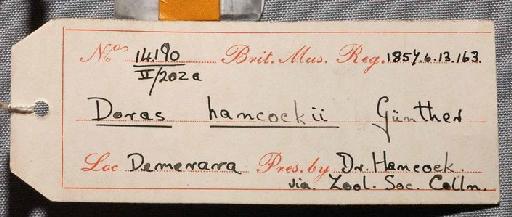 Nos 14190 Brit. Mus. Reg. 1857.6.13.163.
II/202a
Doras hancockii Günther
Loc Demerara Pres. by Dr. Hancock.
via. Zool. Soc. Colln.